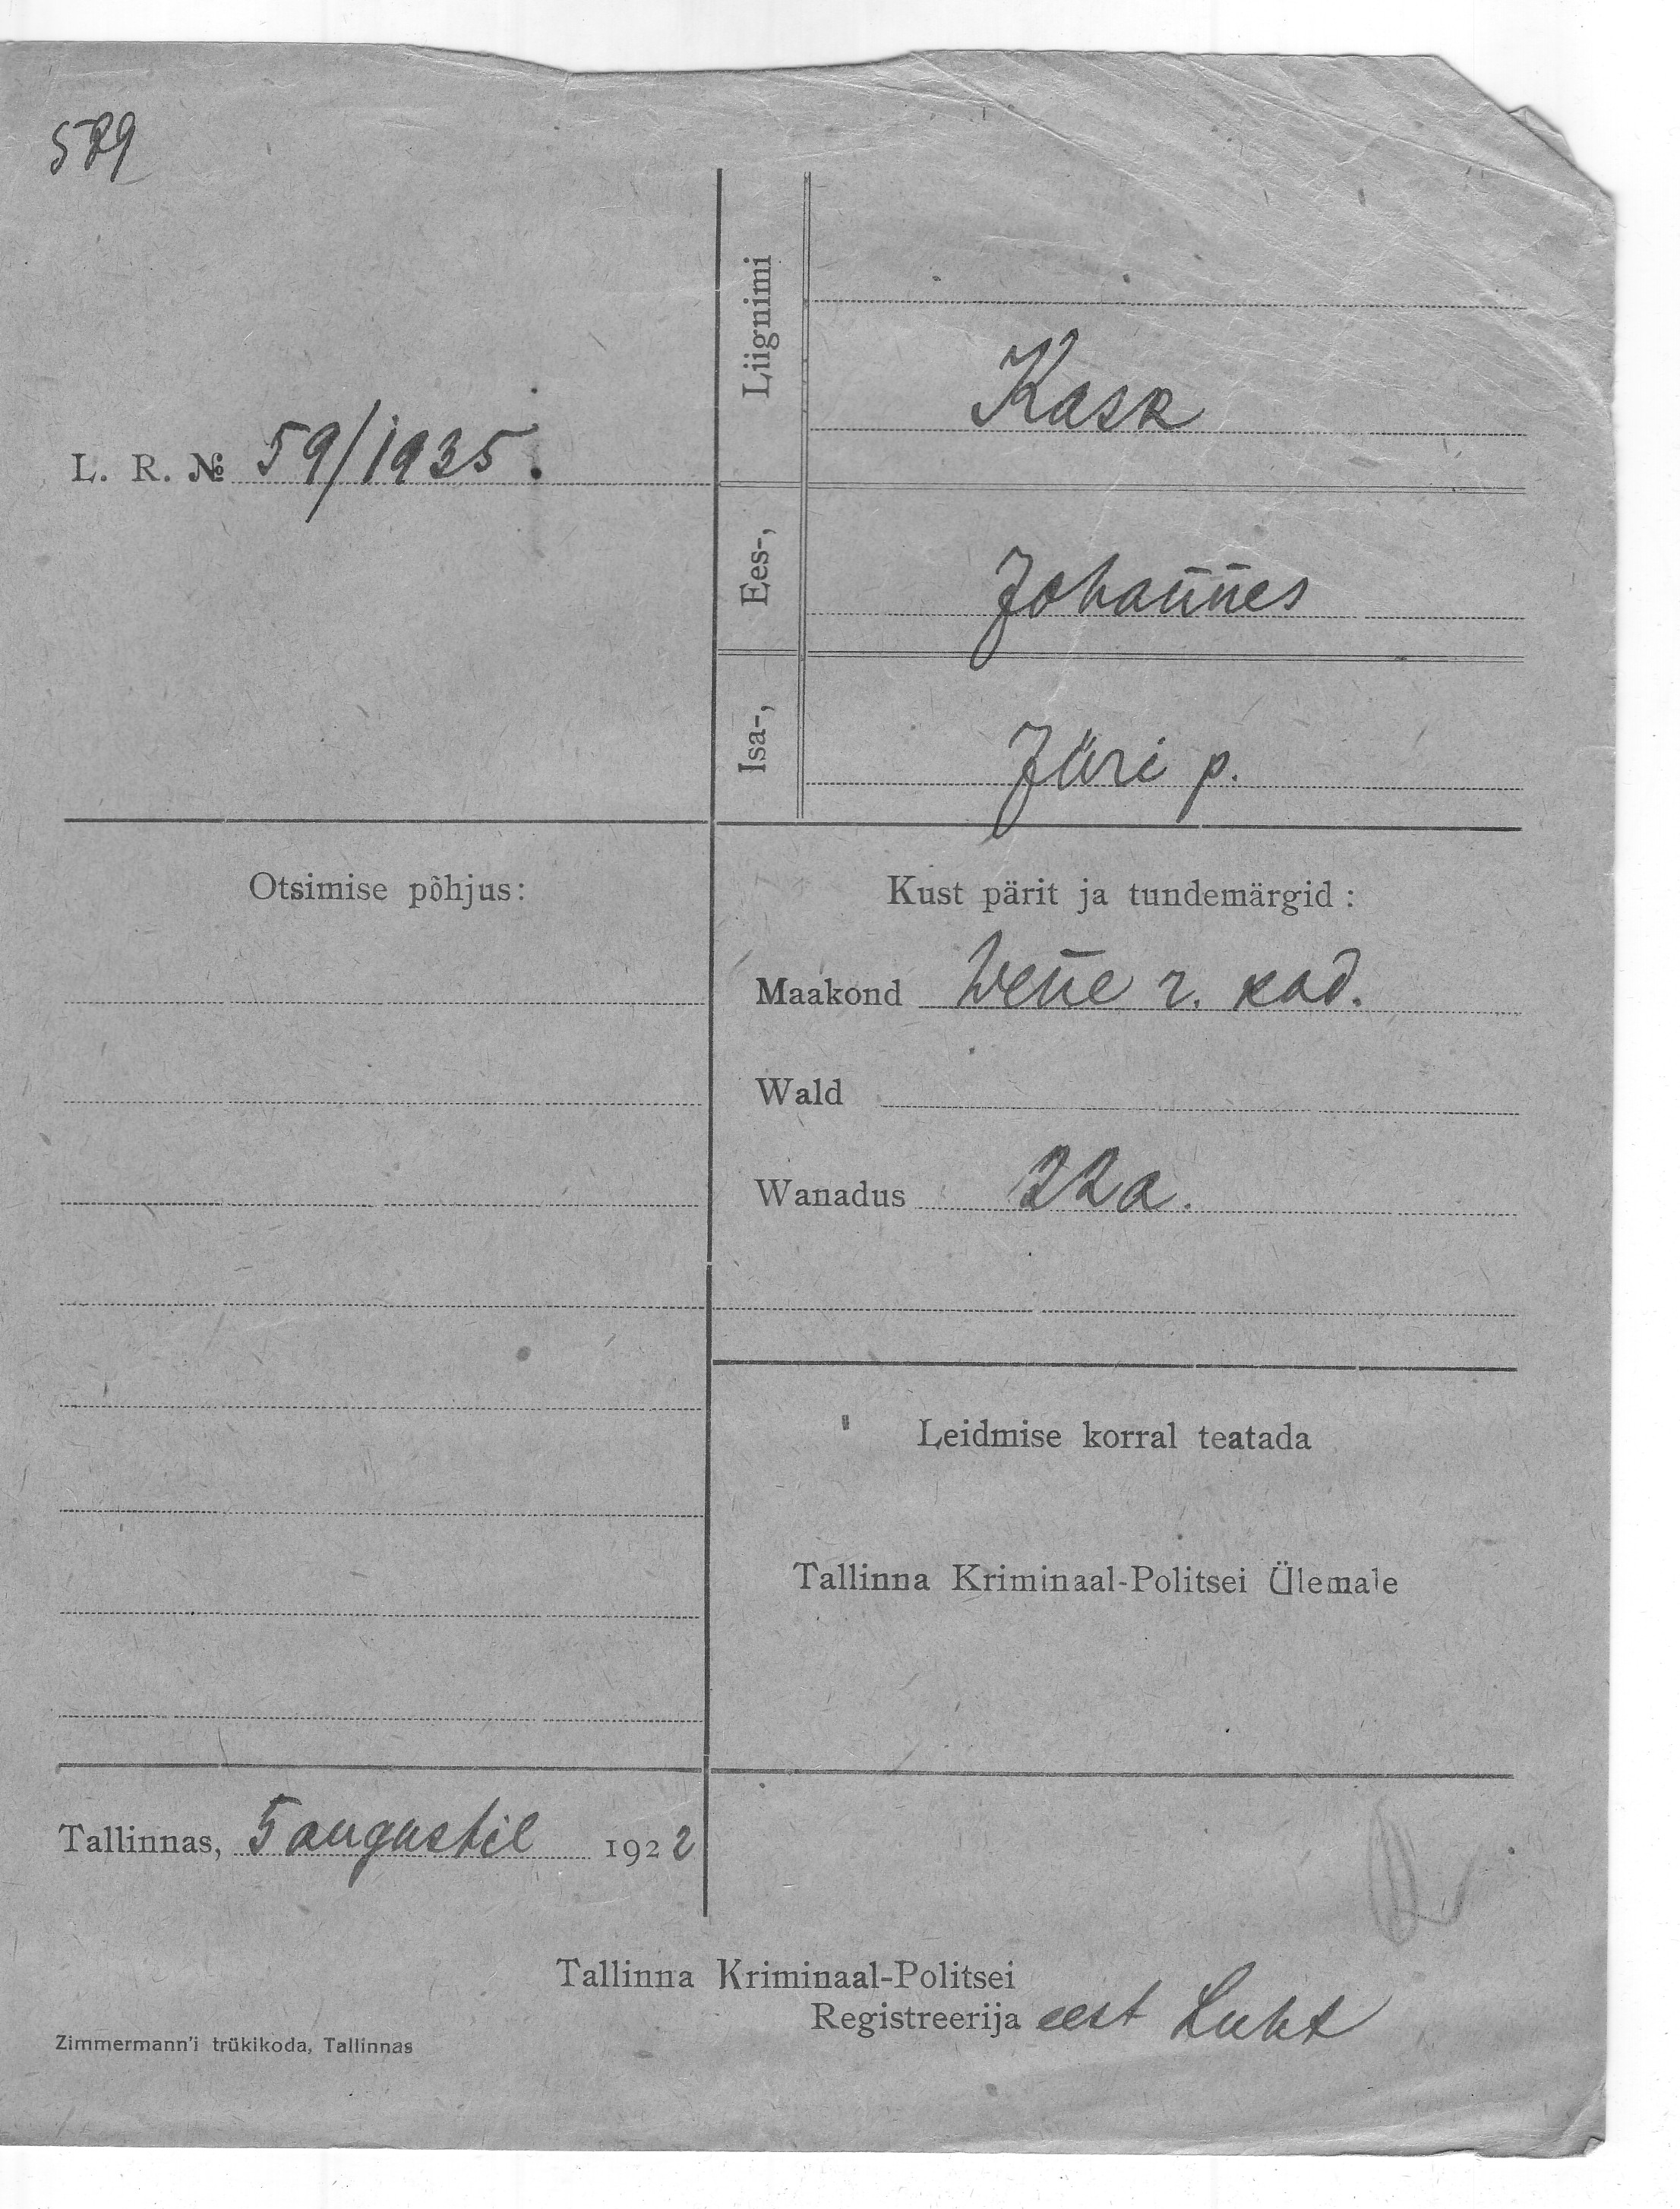 579
L. R. № 59/1935.
Liignimi Kask
Ees-, Johannes
Isa-, Jüri p.
Otsimise põhjus:
Kust pärit ja tundemärgid:
Maakond Wene r. kod.
Wald
Wanadus 22 a.
Leidmise korral teatada
Tallinna Kriminaal-Politsei Ülemale
Tallinnas, 5 augustil 1922
Tallinna Kriminaal-Politsei
Registreerija eest Luht
Zimmermann'i trükikoda, Tallinnas